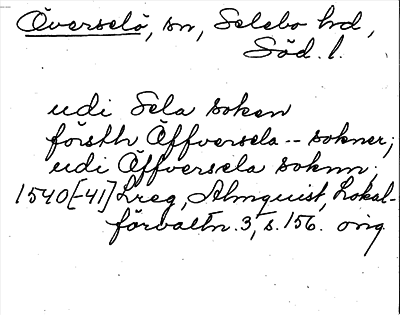 Överselö, sn, Selebo hd,
Söd. l.
udi Sela soken
försth Åffversela -- sokner;
udi Åffversela soknn;
1540[-41] Lreg, Almquist, Lokal-
förvaltn. 3, s. 156. orig